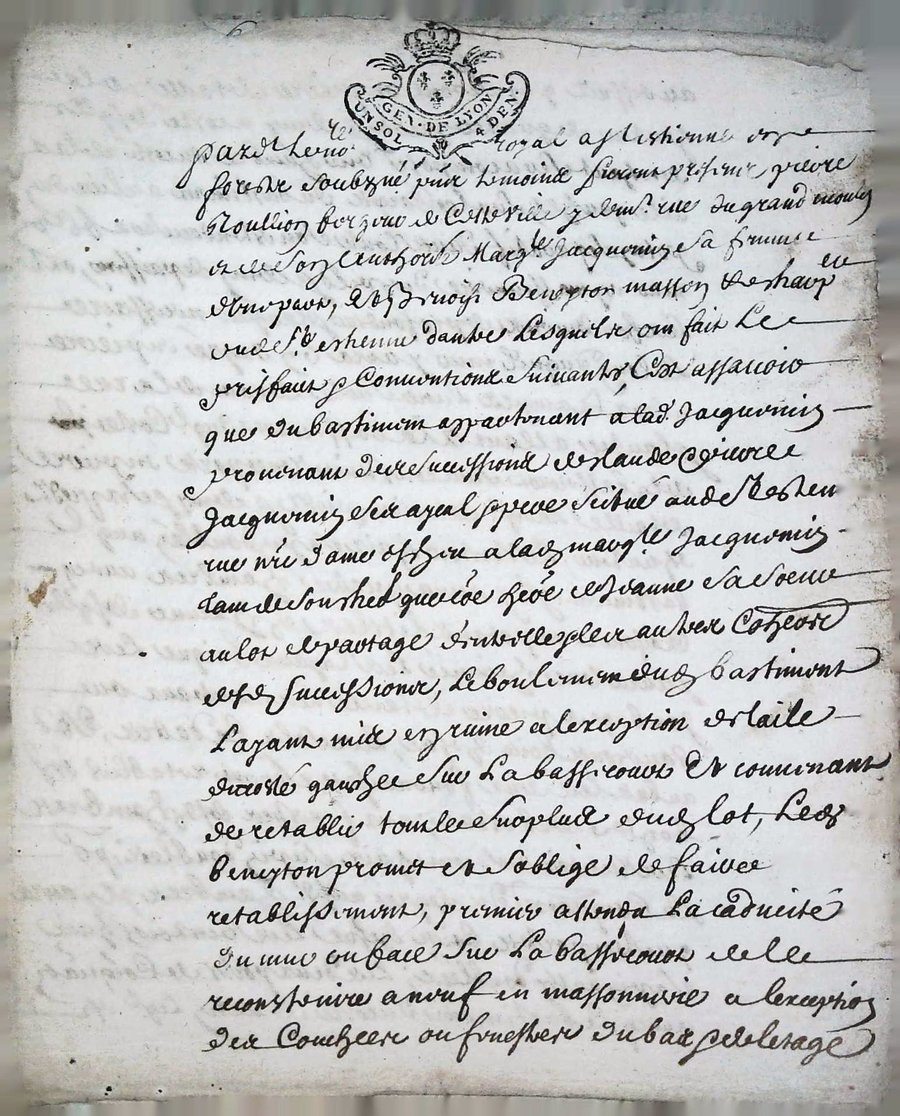 GEN · DE LYON
UN SOL 4 DEN.
Pardt le no.re royal a St Estienne en
forestz soubzné puis temoins furent presens pierre
Roullion bergeur de cette ville y demt. rue du grand moulin
et de son authorité Margte Jacquemin sa femme
d'une part, et Benoist Beneyton masson et charptier
dud. St. estienne d'autre Lesquels ont fait Le
prisfait et Conventions suivantes, C'est assavoir
que du bastiment appartenant a lad. Jacquemin
provenant des successions de Claude et pierre
Jacquemin ses ayeul et pere scitué aud. St Estien
rue nre dame escheu a lad. margte Jacquemin
tant de son chef que coe heoe de Jeanne sa soeur
au lot de partage d'entr'elle et les autres Coheoers
desd. successions, Le boulement dud. bastiment
Layant mis en ruine a lexception de laile
du costé gauche sur La bassecourt Et convenant
de retablir tout le surplus dud. lot, Led.
beneyton promet et s'oblige de faire ce
retablissement, premier attendu La caducité
du mur en face sur La bassecourt de le
reconstruire a neuf en massonnerie a lexception
des Couches ou fenestres du bas et de letage